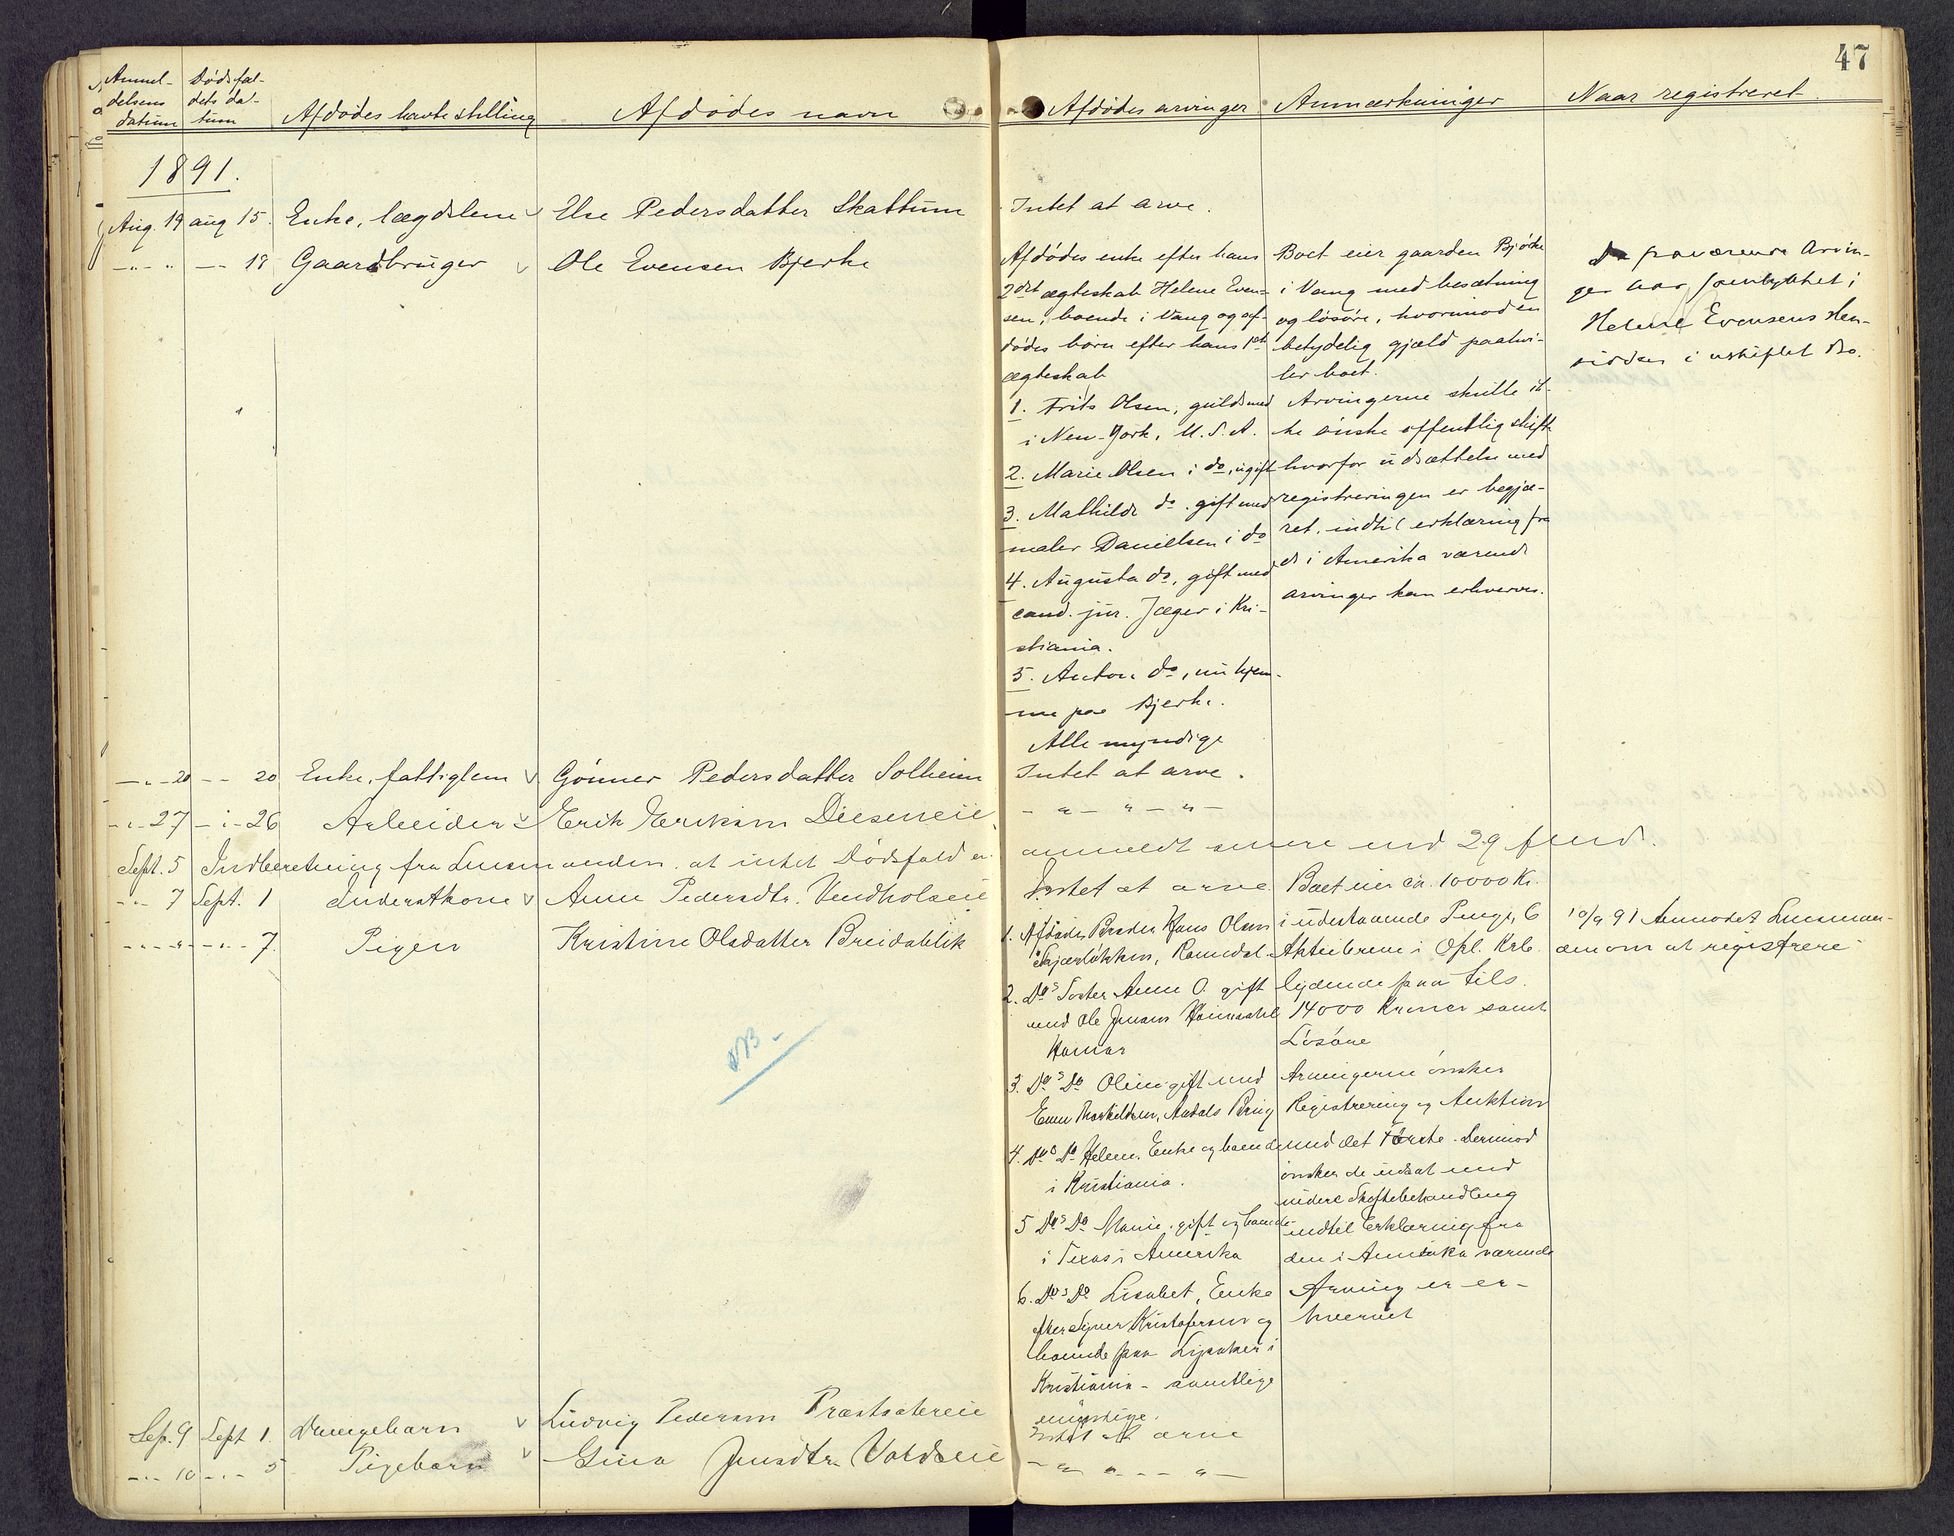 47
Anmel-
delsens
datum
Dødsfal-
dets da-
tum
Afdødes havte stilling
Afdødes navn
Afdødes arvinger
Anmærkninger
Naar registreret
1891.
Aug. 19 aug 15. Enke, lægdslem Else Pedersdatter Skattum
Intet at arve.
18 Gaardbruger Ole Evensen Bjerke
Afdødes enke efter hans
2det ægteskab Helene Even-
sen, boende i Vang og af-
dødes børn efter hans 1ste
ægteskab
1. Frits Olsen, guldsmed
i New-York, U. S. A.
2. Marie Olsen i do, ugift
3. Mathilde do. gift med
maler Daniellsen i do
4. Augusta do, gift med
cand. jur. Jæger i Kri-
stiania.
5. Anton do, nu hjem-
me paa Bjerke.
Alle myndige
Boet eier gaarden Bjørke
i Vang med besætning
og løsøre, hvorimod en
betydelig gjæld paahvi-
ler boet.
Arvingerne skulle ik-
ke ønske offentlig skifte
hvorfor udsættelse med
registreringen er begjæ-
ret, indtil erklæring fra
de i Amerika værende
arvinger kan erhverves.
De præværende Arvin-
ger har samtykket i
Helene Evensens Hen-
sidden i uskiftet Bo.
20 20 Enke, fattiglem Gønner Pedersdatter Solheim
Intet at arve.
27 26 Arbeider Erik Eriksen Diesereie
Sept. 5 Indberetning fra Lensmanden, at intet Dødsfald er
anmeldt
7 Sept. 1 Inderstkone Anne Pedersdtr. Vendholseie
Intet at arve.
7. Pigen Kristine Olsdatter Breidablik
1. Afdødes Broder Hans Olsen
Skjærløkken, Romedal
2. Do s Søster Anne O. gift
med Ole Jensen
Hamar
3. Do s Do Oline gift med
4. Do s Do Helene, Enke og boende
i Kristiania.
5 Do s Do Marie, gift og boende
i Texas i Amerika
6. Do s Do Lisabet, Enke
efter Kristofersen og
boende paa Lysaker i
Kristiania - samtlige
myndige.
Boet eier ca. 10000 Kr.
i udestaaende Penge, 6
Aktiebreve i Opl. Krb.
lydende paa tils.
14000 Kroner samt
Løsøre
Arvingerne ønsker
Registrering og Auktion
med det Første. Derimod
ønsker de udsat med
videre Skiftebehandling
indtil Erklæring fra
den i Amerika værende
Arving er er-
hvervet
10/9 91 Anmodet Lensman-
den om at registrere
NB.
Sep. 9 Sept 1. Drengebarn Ludvig Pedersen Præstsætereie
Intet at arve
10 5 Pigebarn Gina Jensdtr. Voldseie